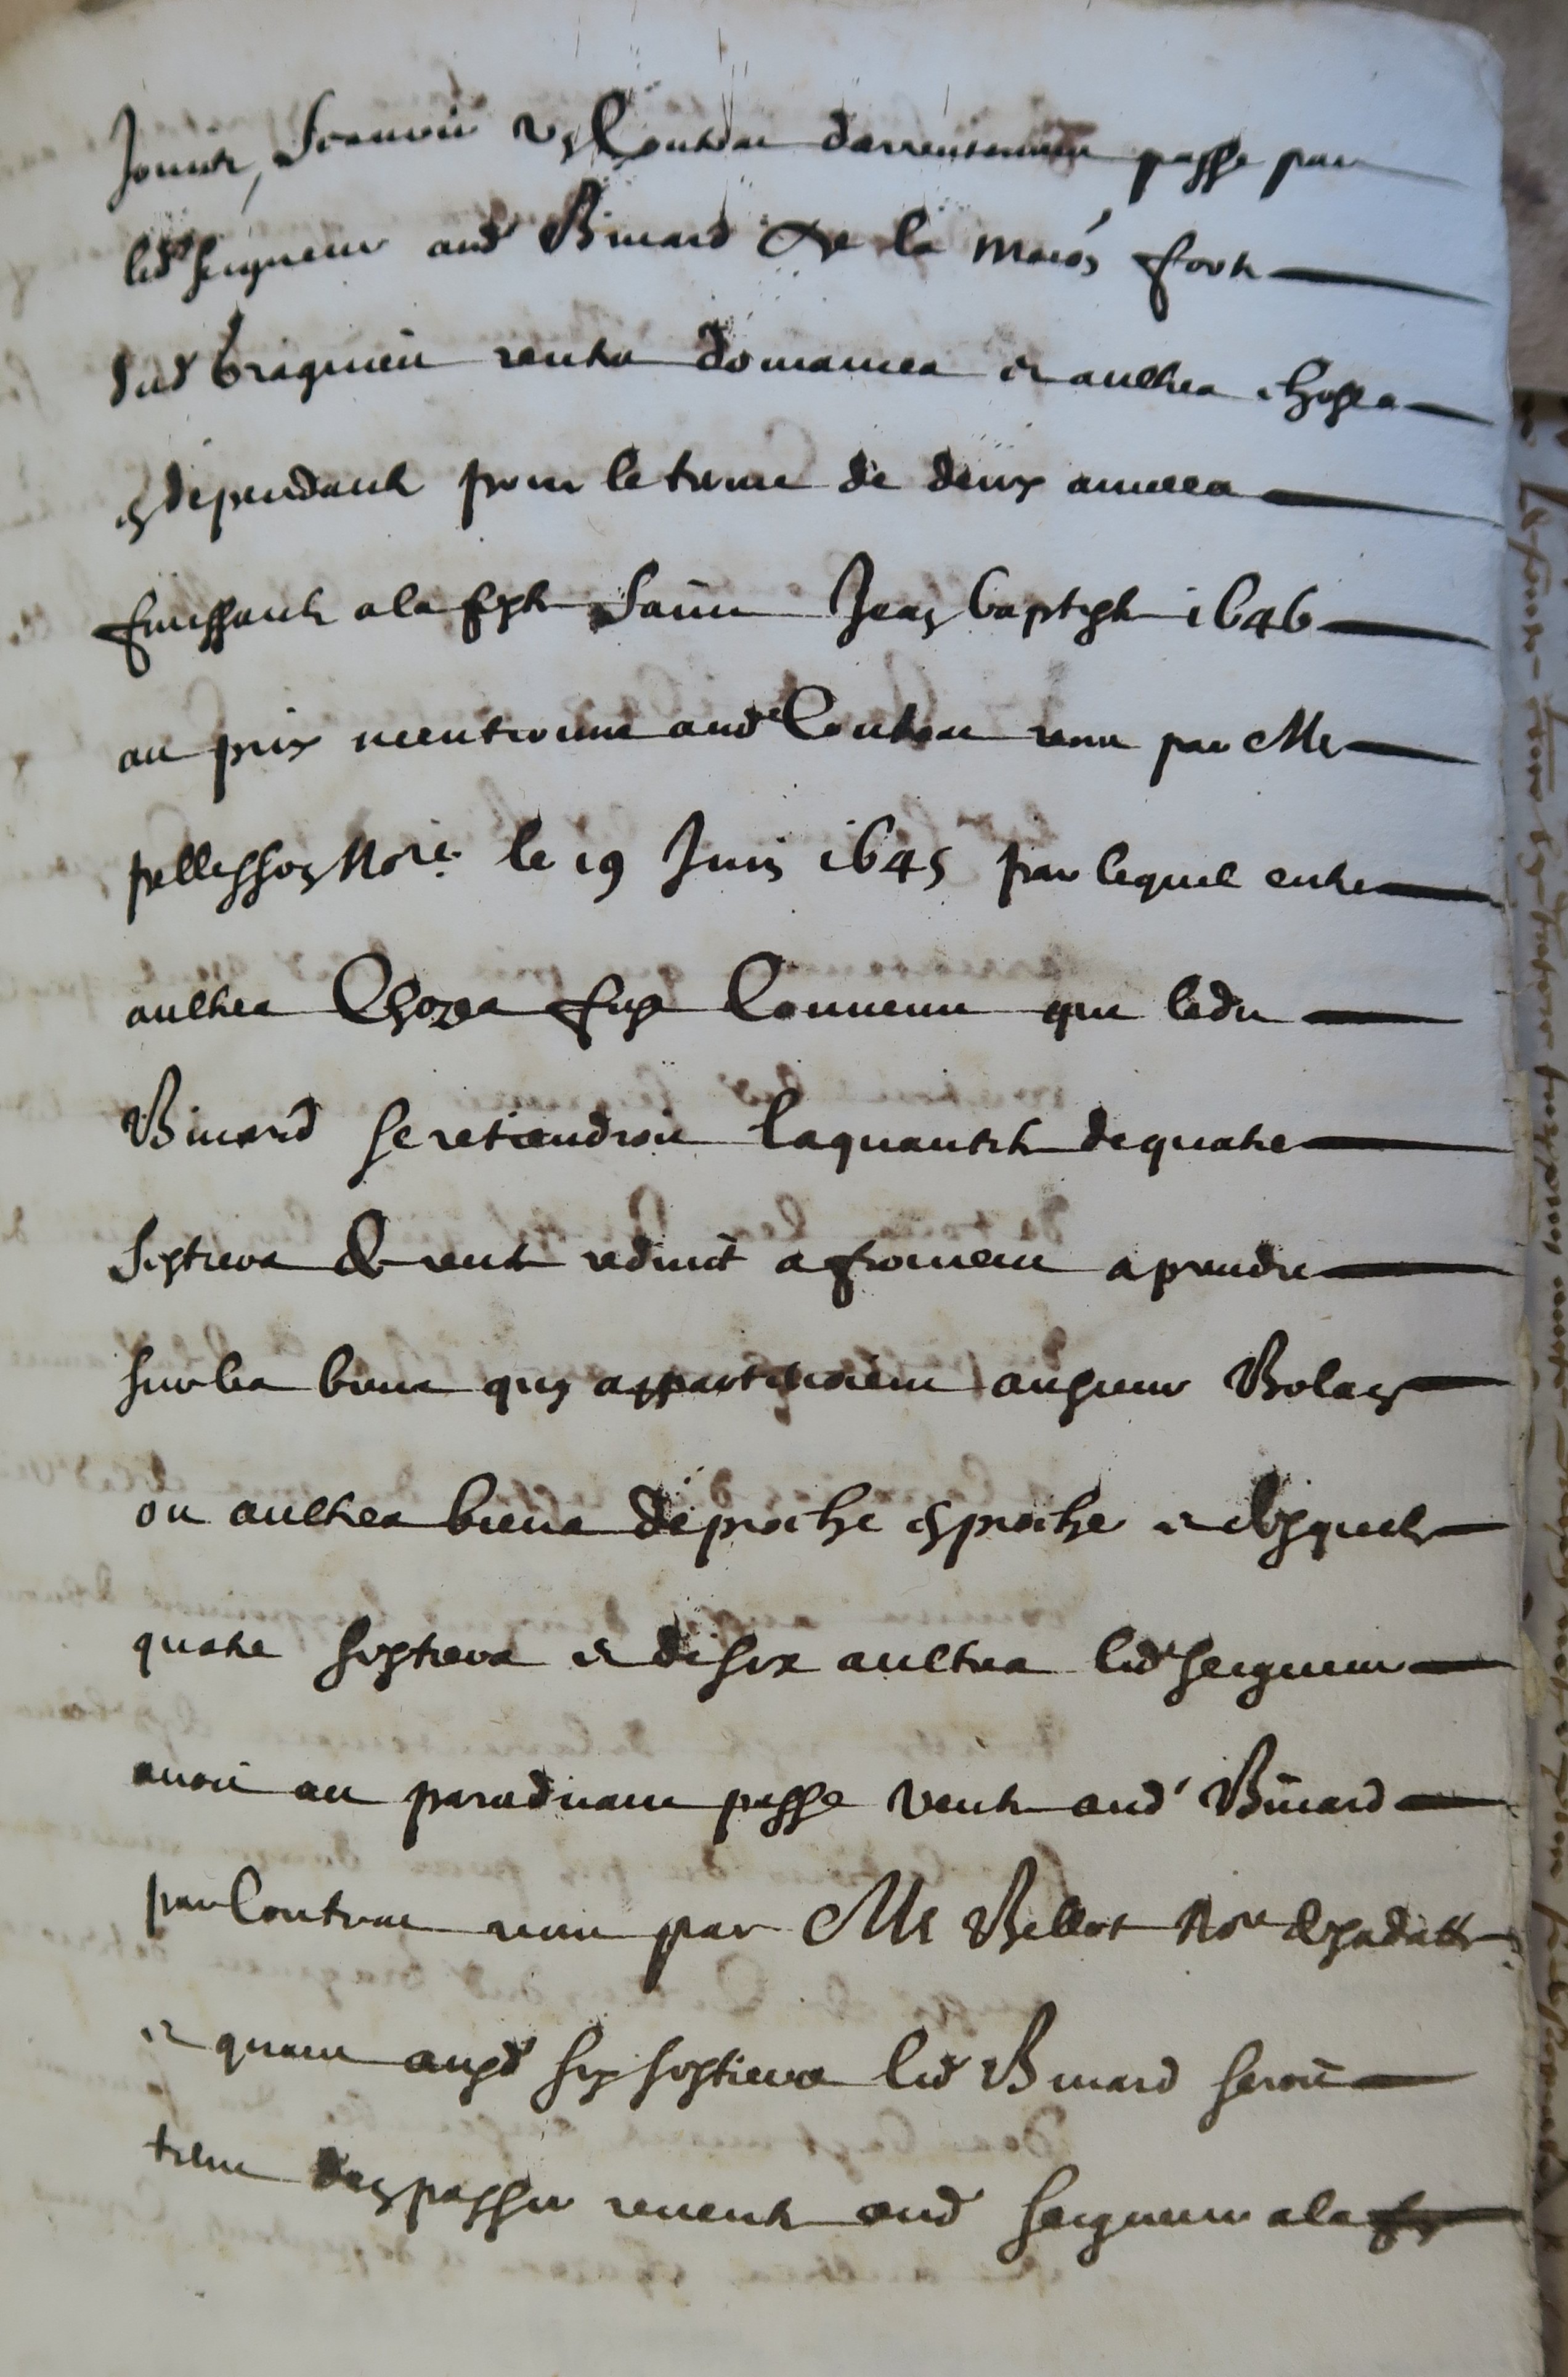 Jointe, Scavoir un Contrat darrentement passe par
led' seigneur aud' Binard de la maiôn fort
dud bragmein rentes domaines et aultres choses
en dependants pour le terme de deux annees
finissants a la feste Sainct Jean baptiste 1646
au prix mentionne aud' Contrat receu par Me
pellisson Nore. le 19 Juin 1645 par lequel entre
aultres Chozes fust Convenu que ledit
Binard se retiendroit la quantité de quatre
Sestiers de rente reduict a froment a prendre
sur les biens quy appartenoient au sieur Bolan
ou aultres biens de proche en proche et desquels
quatre sestiers et de six aultres led' seigneur
avoit au paradvant passe vente aud' Binard
par Contract receu par Me Bellot Nore
et quant ausd' six sestiers led Binard seroit
tenu den passer revente aud seigneur a la fin